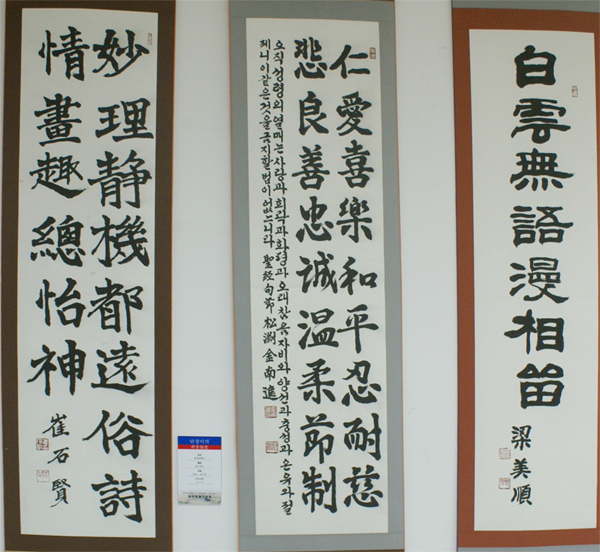 妙理静機都遠俗詩
情畫趣總怡神
崔石賢
仁愛喜樂和平忍耐慈
悲良善忠誠温柔節制
오직 성령의 열매는 사랑과 희락과 화평과 오래 참음 자비와 양선과 충성과 온유와 절
제니 이같은 것을 금지할 법이 없느니라 聖經句節 松澗 金南進
白雲無語漫相留
梁美順